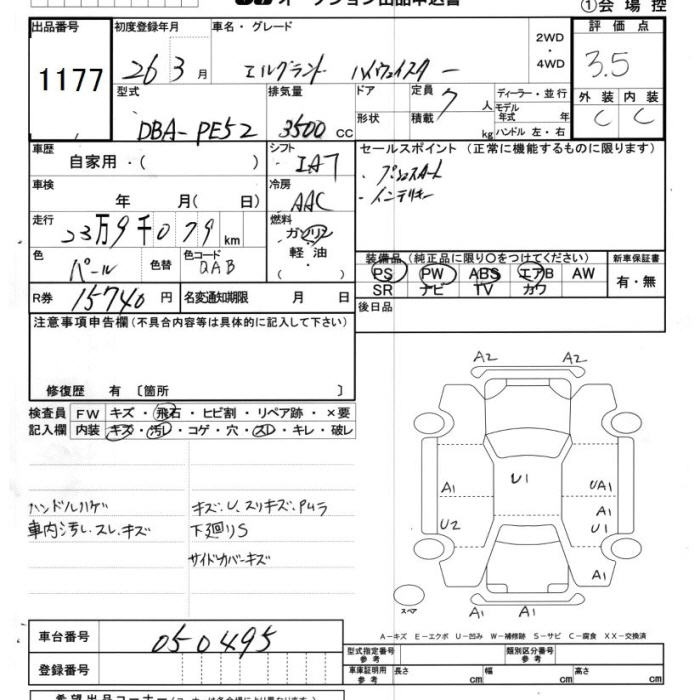 オークション出品申込書
①会場控
出品番号 初度登録年月 車名・グレード 評価点
1177 26 3月 エルグランド ハイウェイスター 2WD・4WD 3.5
型式 排気量 ドア 定員 7人 ディーラー・並行 外装 内装
DBA-PE52 3500CC 形状 積載 kg モデル年式 年 C C
ハンドル 左・右
車歴 シフト セールスポイント(正常に機能するものに限ります)
自家用・( ) IAT ・プッシュスタート
車検 冷房 ・インテリキー
年 月( 日) AAC
走行 燃料
23万9千079km ガソリン
軽油
・( ・ )
色 色替 色コード 装備品(純正品に限り○をつけてください) 新車保証書
パール QAB PS PW ABS エアB AW 有・無
SR ナビ TV カワ
R券 15740円 名変通知期限 月 日 後日品
注意事項申告欄(不具合内容等は具体的に記入して下さい)
修復歴 有〔箇所 〕
検査員 FW キズ・飛石・ヒビ割・リペア跡・×要
記入欄 内装 キズ・汚レ・コゲ・穴・スレ・キレ・破レ
ハンドルハゲ キズ.U.スリキズ.PMラ
車内汚レ.スレ.キズ 下廻りS
サイドカバーキズ
A2 A2
U1
A1 UA1
A1
U2 U1
A1
スペア A1 A1
A-キズ E-エクボ U-凹み W-補修跡 S-サビ C-腐食 XX-交換済
車台番号 050495
型式指定番号 参考 類別区分番号 参考
登録番号 車庫証明用 参考 長さ cm 幅 cm 高さ cm
希望出品コーナー